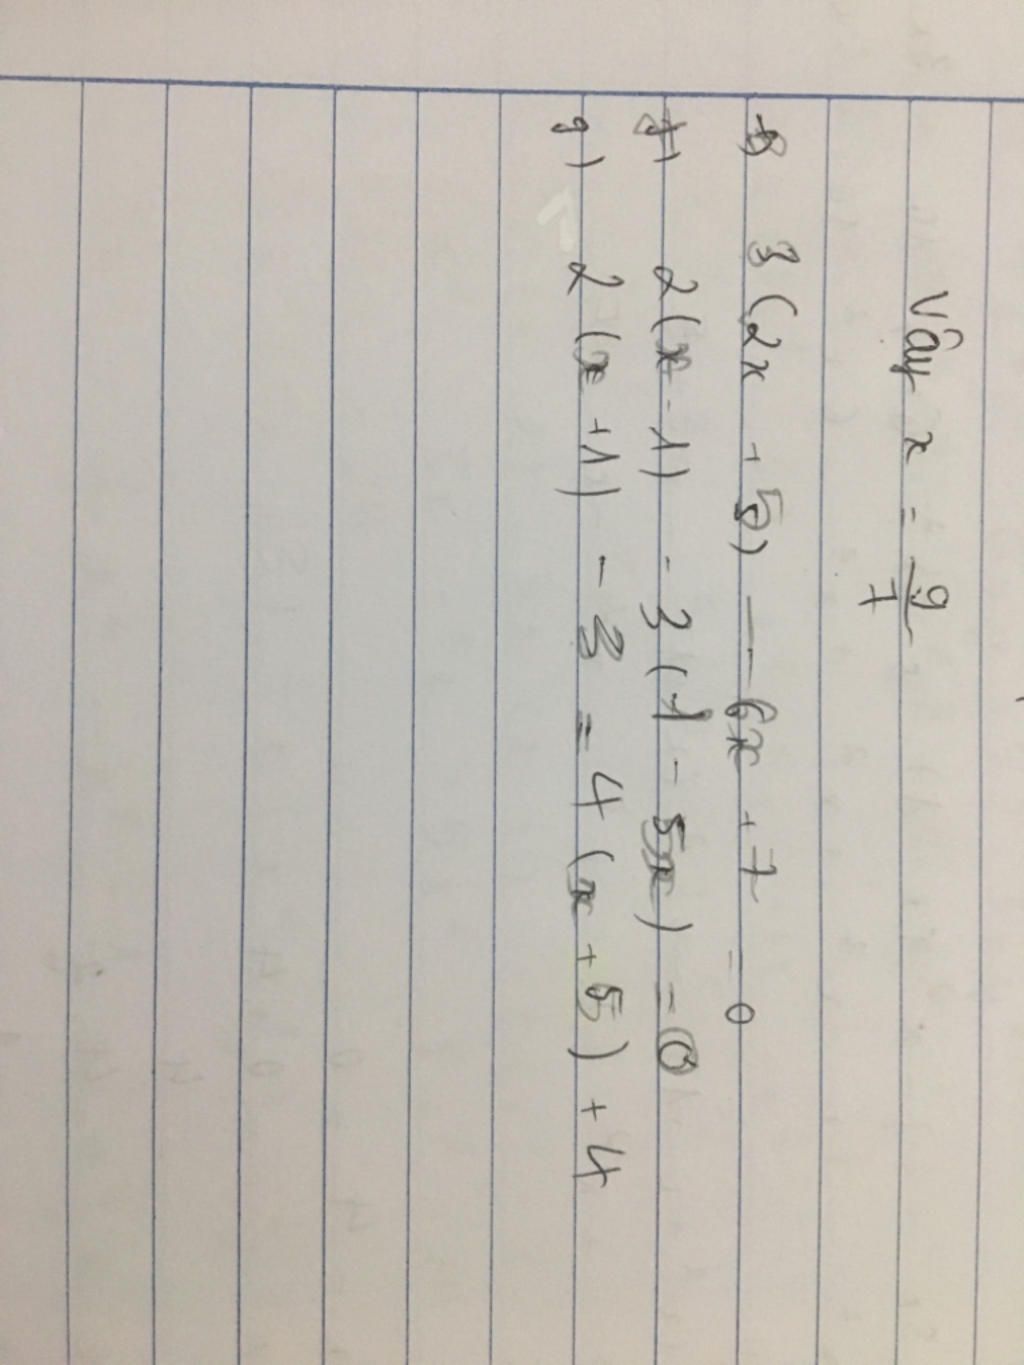 Vậy x = 9/7
3(2x + 5) — 6x + 7 = 0
f) 2(x - 1) - 3(1 - 5x) = 0
g) 2(x + 1) - 3 = 4(x + 5) + 4